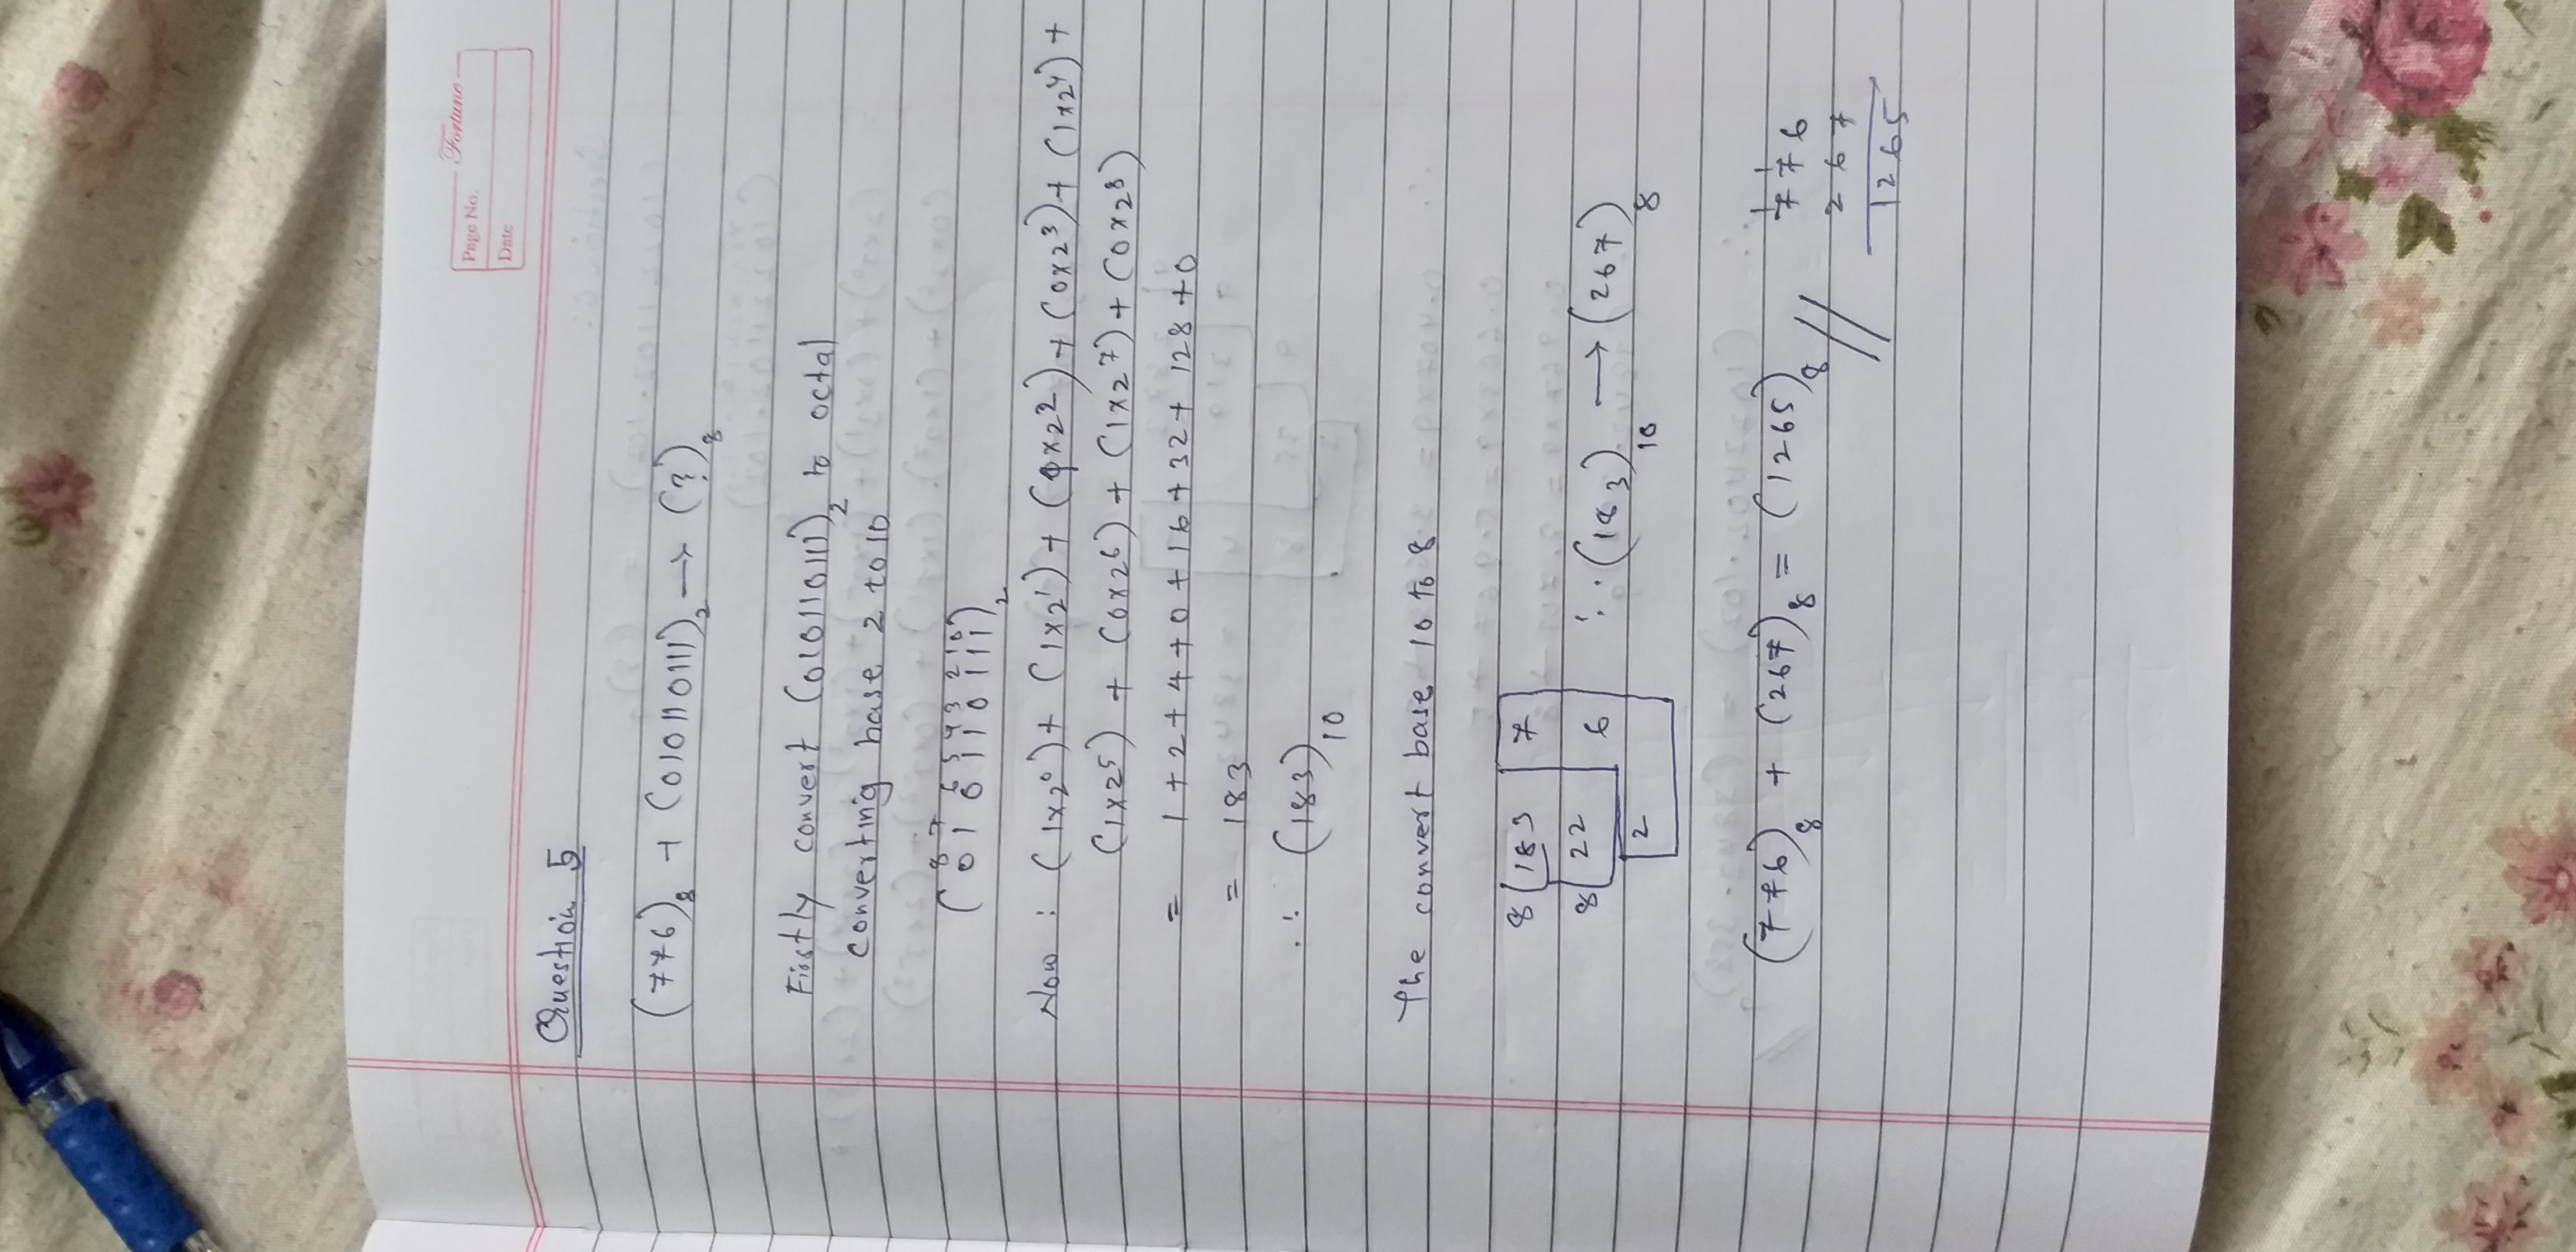 Fortune
Page No.
Date
Question 5
(776)₈ + (010110111)₂ → (?)₈
Firstly convert (010110111)₂ to octal
converting base 2 to 10
8 7 6 5 4 3 2 1 0
(0 1 0 1 1 0 1 1 1)₂
Now : (1x2⁰) + (1x2¹) + (1x2²) + (0x2³) + (1x2⁴) +
(1x2⁵) + (0x2⁶) + (1x2⁷) + (0x2⁸)
= 1 + 2 + 4 + 0 + 16 + 32 + 128 + 0
= 183
∴ (183)₁₀
The convert base 10 to 8
8 183 7
8 22 6
2
∴ (183)₁₀ → (267)₈
(776)₈ + (267)₈ = (1265)₈ //
1 1
776
267
1265